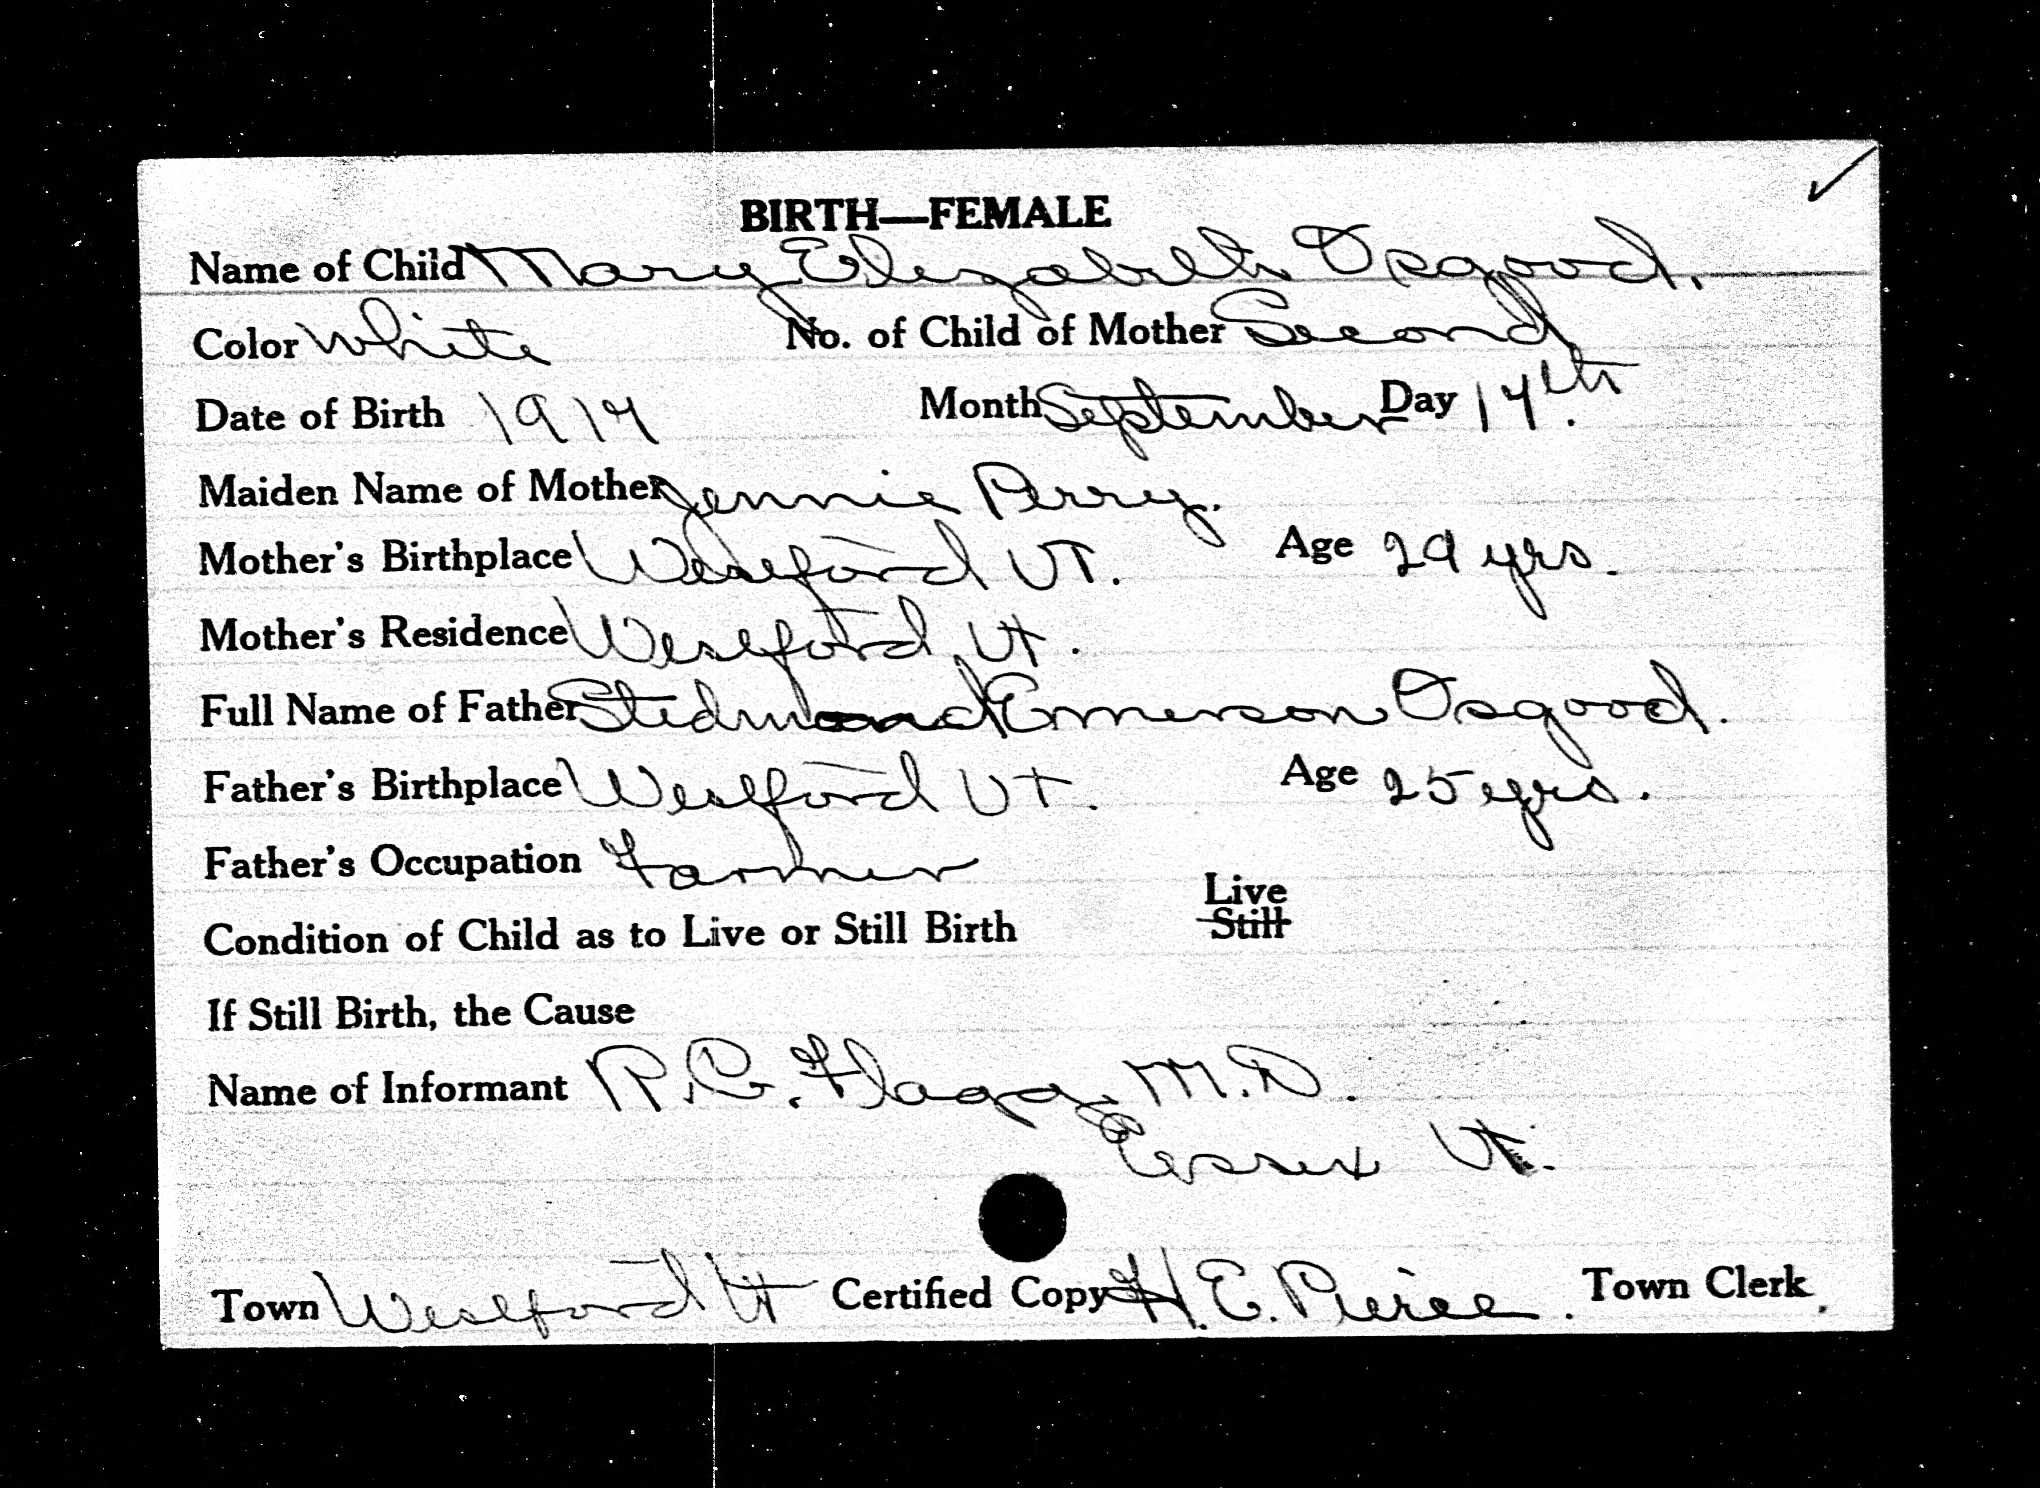 BIRTH—FEMALE
Name of Child Mary Elizabeth Osgood.
Color White No. of Child of Mother Second
Date of Birth 1914 Month September Day 14th.
Maiden Name of Mother Jennie Perry.
Mother's Birthplace Westford VT. Age 29 yrs.
Mother's Residence Westford Vt.
Full Name of Father Stedmond Emerson Osgood.
Father's Birthplace Westford Vt. Age 25 yrs.
Father's Occupation Farmer
Condition of Child as to Live or Still Birth Live
Still
If Still Birth, the Cause
Name of Informant R. C. Flagg, M.D.
Essex Vt.
Town Westford Vt Certified Copy H. E. Pierce. Town Clerk.